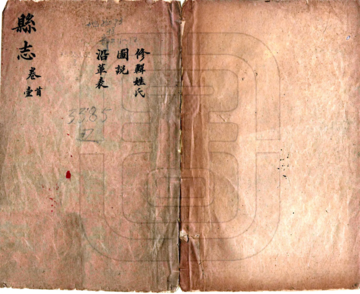 縣志 卷首壹
修輯姓氏
圖說
沿革表